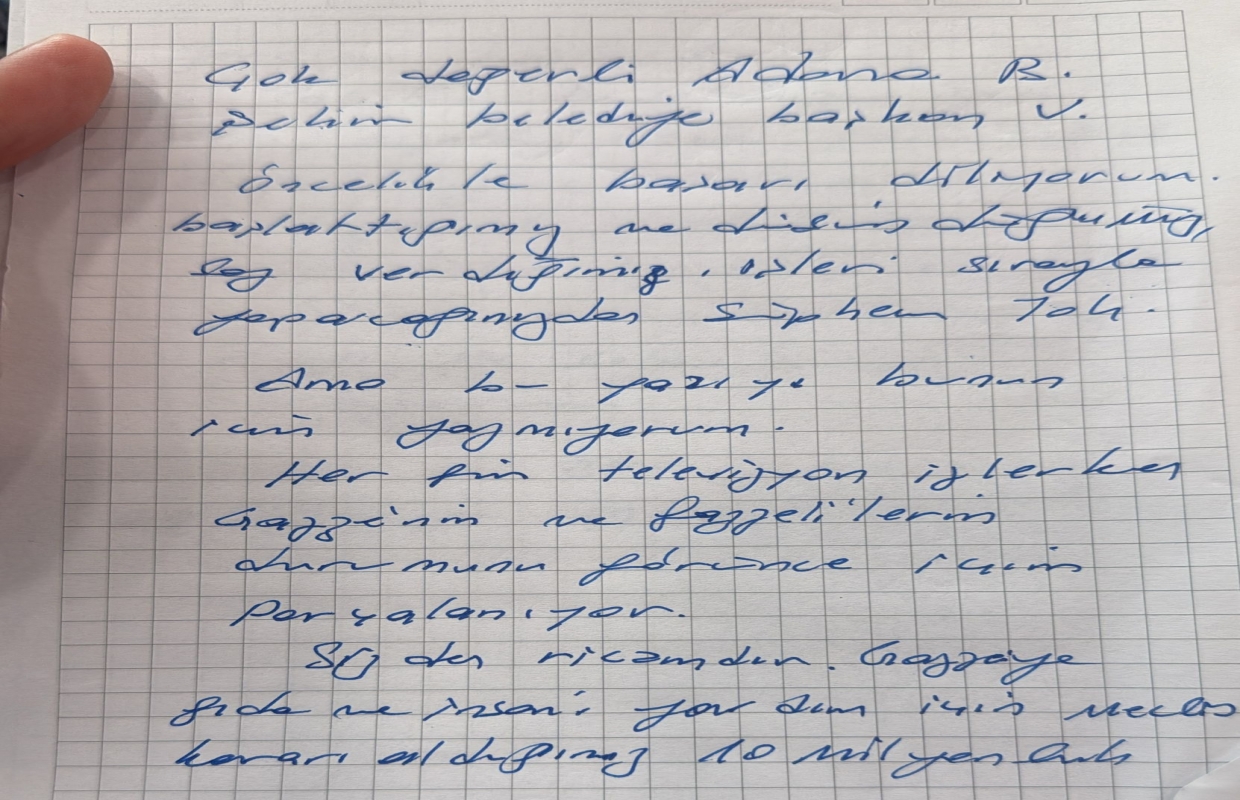 Çok değerli Adana B.
Şehir belediye başkan V.
Öncelikle başarı diliyorum.
başlattığınız ve düşündüğünüz,
söz verdiğiniz, işleri sırayla
yapacağınızdan şüphem Yok.
Ama bu yazıyı bunun
için yazmıyorum.
Her gün televizyon izlerken
Gazze'nin ve gazzeli'lerin
durumunu görünce içim
parçalanıyor.
Sizden ricamdır. Gazzeye
gıda ve insani yardım için meclis
kararı aldığınız 10 milyonluk